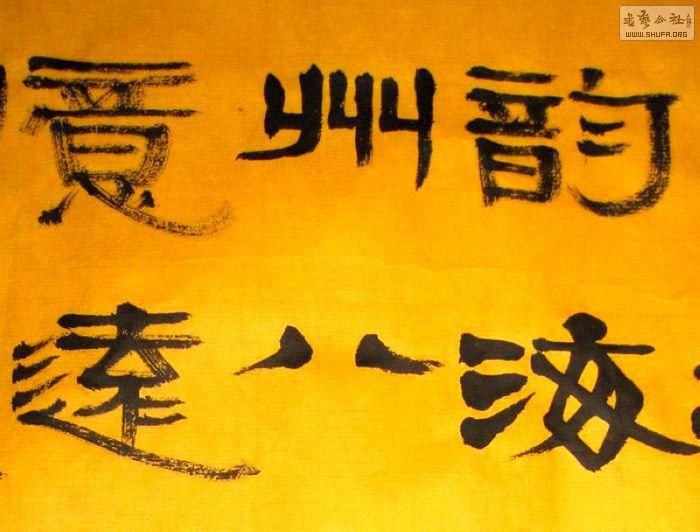 韵海
州八
意達
書藝公社
WWW.SHUFA.ORG